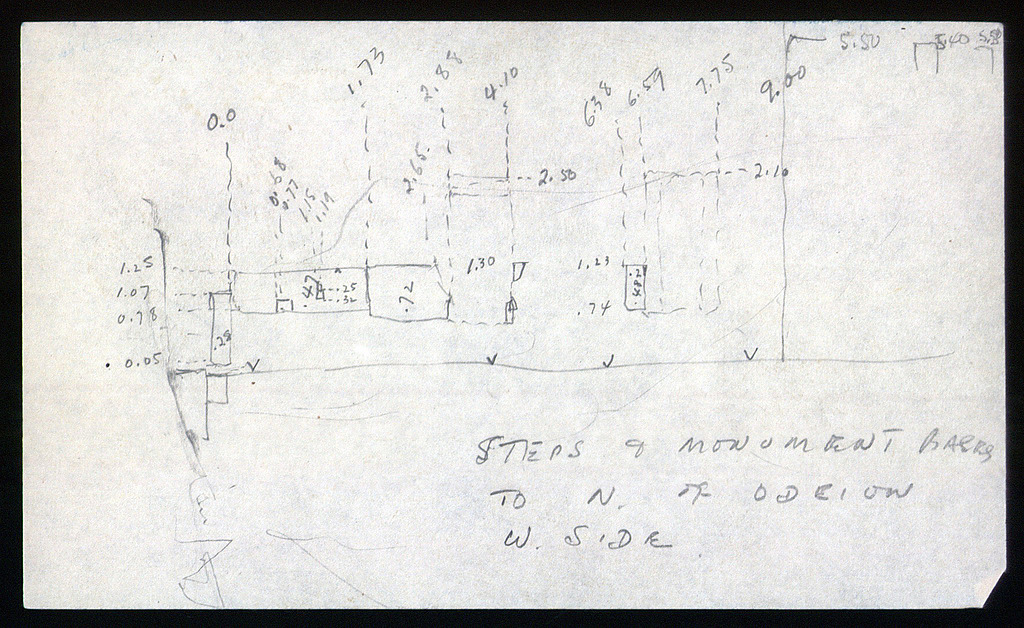 5.50 5.40
0.0 1.73 2.88 4.10 6.38 6.59 7.75 9.00
0.68 0.77 1.15 1.19 2.65 2.50 2.10
1.25 1.30 1.23
1.07 .47 .25 .72
0.78 .32 .74
.28
0.05
STEPS & MONUMENT BASES
TO N. OF ODEION
W. SIDE